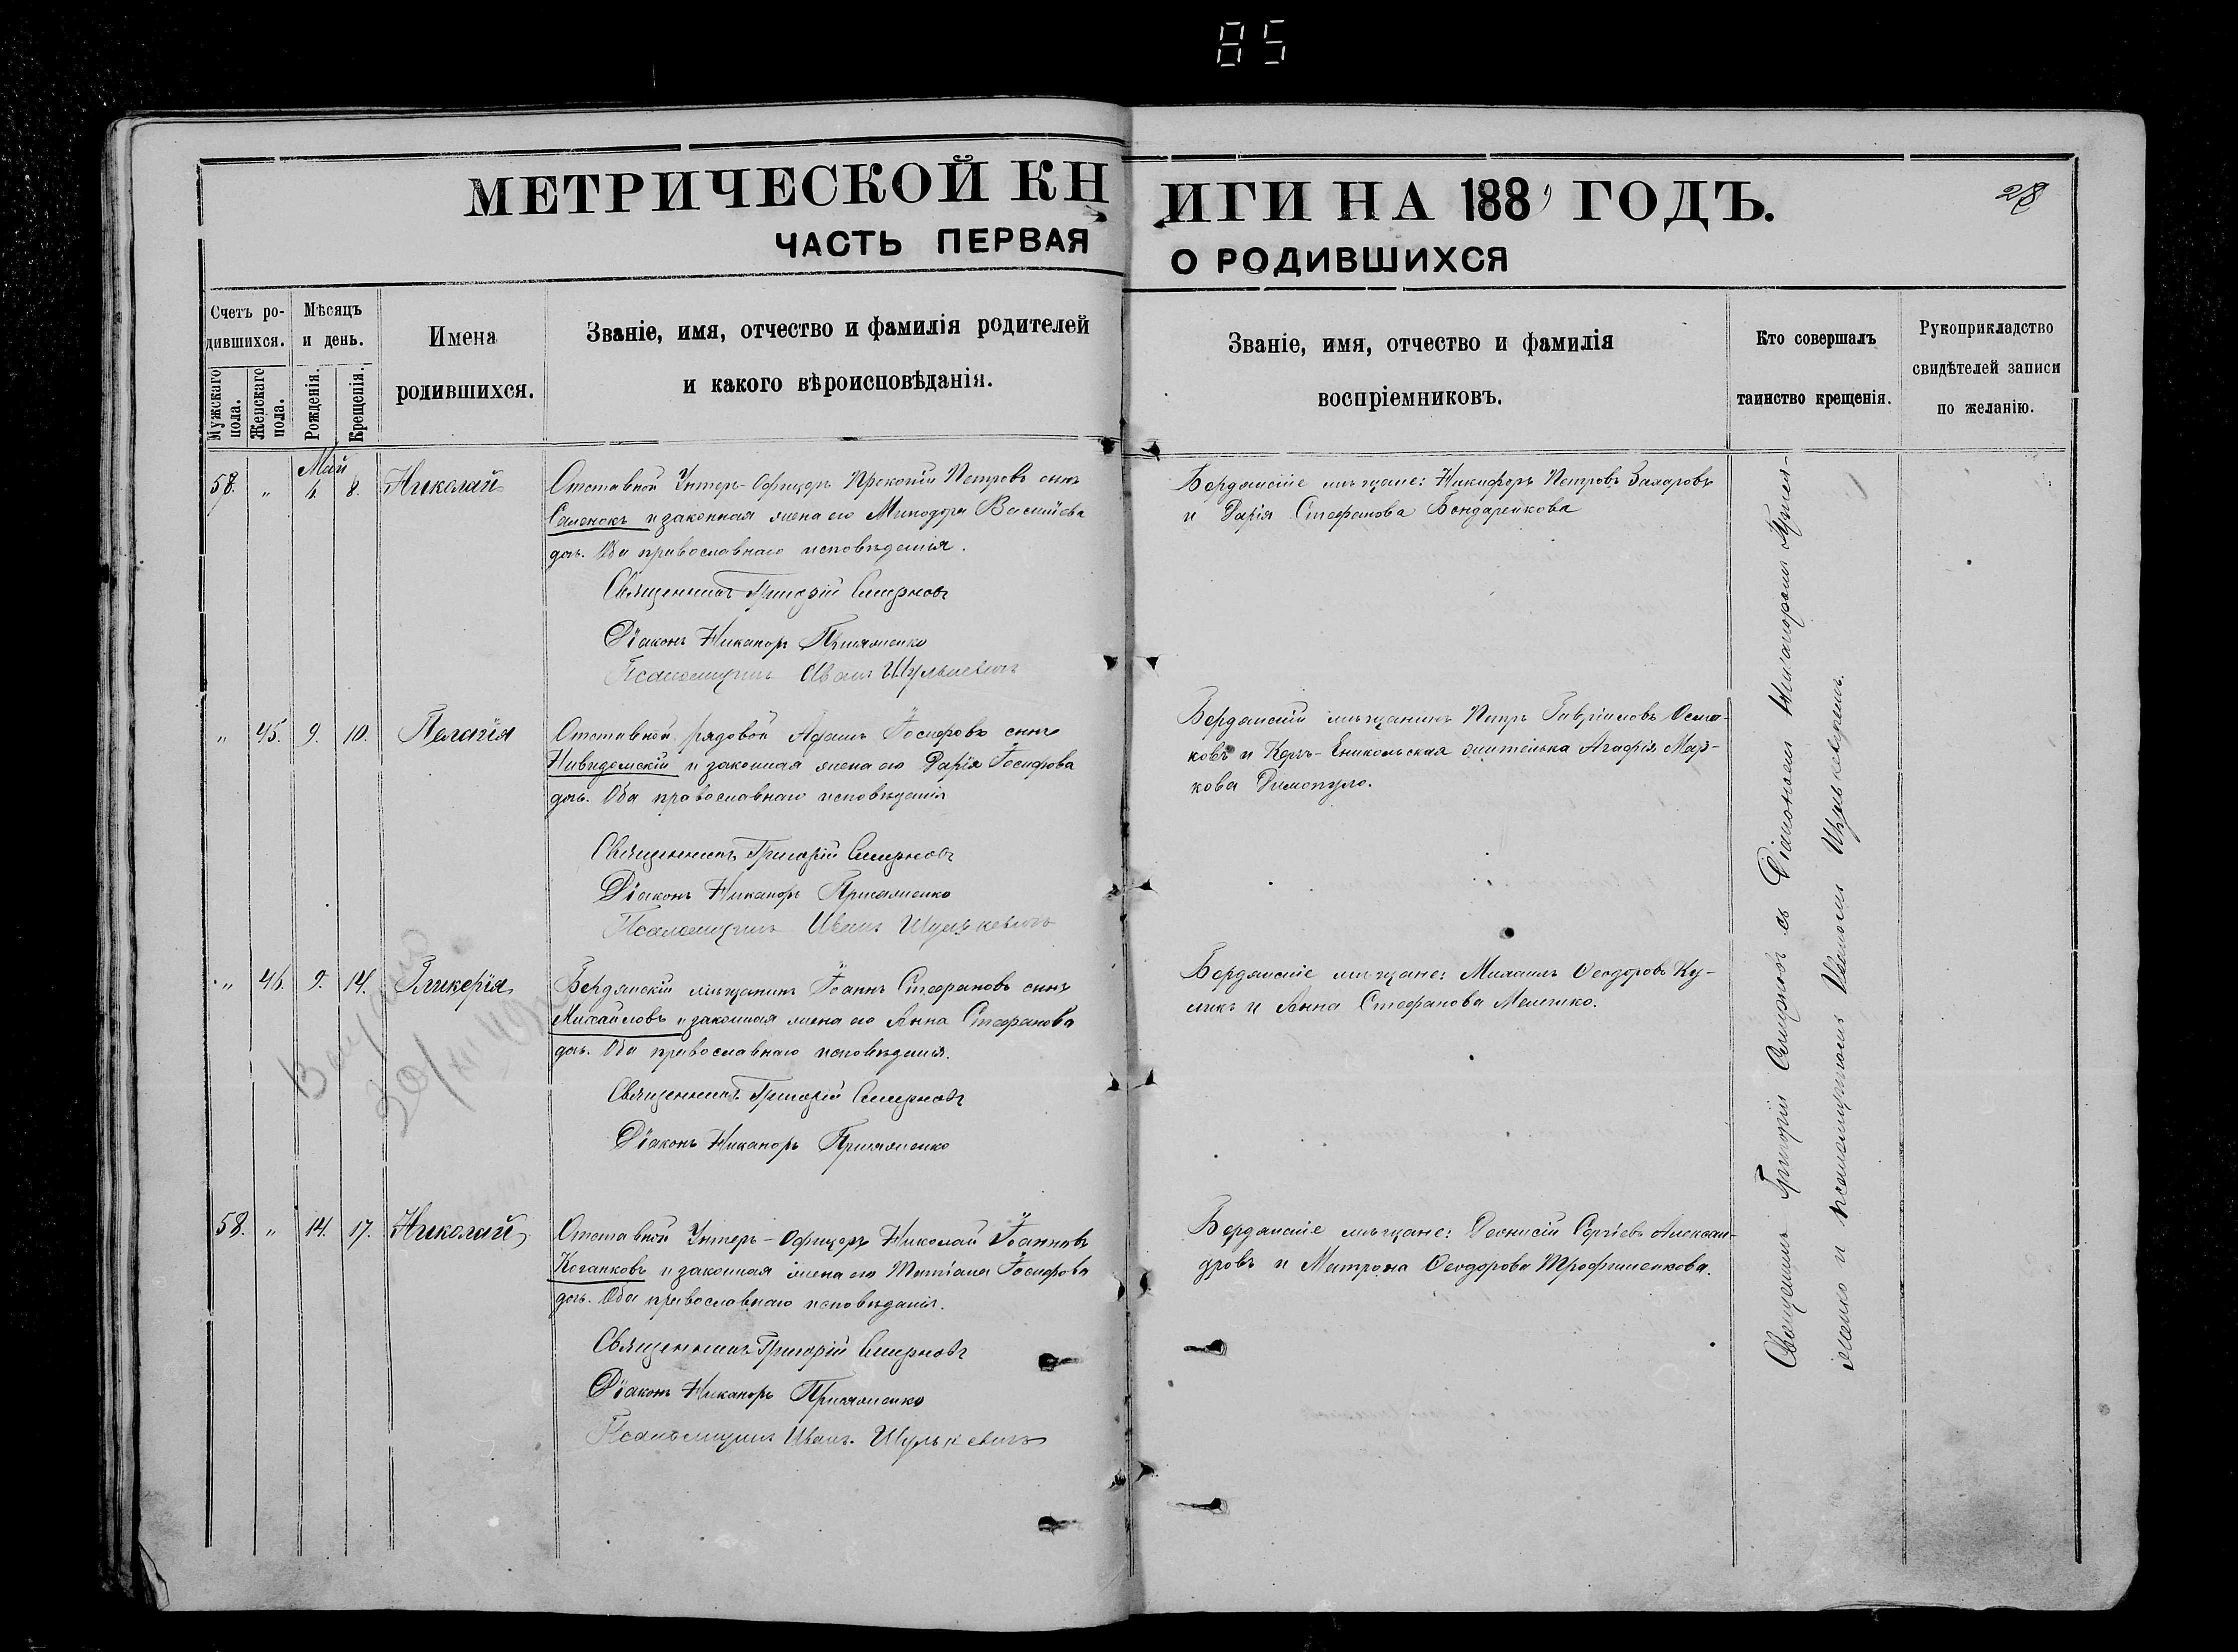 85
МЕТРИЧЕСКОЙ КНИГИ НА 188 ГОДЪ.
28
ЧАСТЬ ПЕРВАЯ О РОДИВШИХСЯ
Счетъ родившихся.
Мужскаго пола.
Женскаго пола.
Мѣсяцъ и день.
Рожденія.
Крещенія.
Имена родившихся.
Званіе, имя, отчество и фамилія родителей
и какого вѣроисповѣданія.
Званіе, имя, отчество и фамилія
воспріемниковъ.
Кто совершалъ
таинство крещенія.
Рукоприкладство
свидѣтелей записи
по желанію.
Май
58. " 8. Николай
Отставной Унтеръ-Офицеръ Прокопій Петровъ сынъ
и законная жена его Минодора Васильева
дочь. Оба православнаго исповѣданія.
Священникъ Григорій Смирновъ
Діаконъ Никаноръ
Псаломщикъ Иванъ Шулькевичъ
Бердянскіе мѣщане: Никифоръ Петровъ Захаровъ
и Дарія Стефанова Бондаренкова
" 45. 9. 10. Пелагія
Отставной рядовой Адамъ Іосифовъ сынъ
и законная жена его Дарія Іосифова
дочь. Оба православнаго исповѣданія
Священникъ Григорій Смирновъ
Діаконъ Никаноръ
Псаломщикъ Иванъ Шулькевичъ
Бердянскій мѣщанинъ Петръ Гавріиловъ Осма-
ковъ и Керчь-Еникольская жителька Агафія Мар-
кова Димопуло.
" 46. 9. 14. Гликерія
Бердянскій мѣщанинъ Іоаннъ Стефановъ сынъ
Михайловъ и законная жена его Анна Стефанова
дочь. Оба православнаго исповѣданія.
Священникъ Григорій Смирновъ
Діаконъ Никаноръ
Бердянскіе мѣщане: Михаилъ Ѳеодоровъ Ку-
ликъ и Анна Стефанова
58. " 14. 17. Николай
Отставной Унтеръ-Офицеръ Николай Іоанновъ
и законная жена его Татіана Іосифова
дочь. Оба православнаго исповѣданія.
Священникъ Григорій Смирновъ
Діаконъ Никаноръ
Псаломщикъ Иванъ Шулькевичъ
Бердянскіе мѣщане: Діонисій Сергіевъ Александ-
ровъ и Матрона Ѳеодорова Трофименкова.
Священникъ Григорій Смирновъ съ Діакономъ Никаноромъ
и псаломщикомъ Иваномъ Шулькевичемъ.